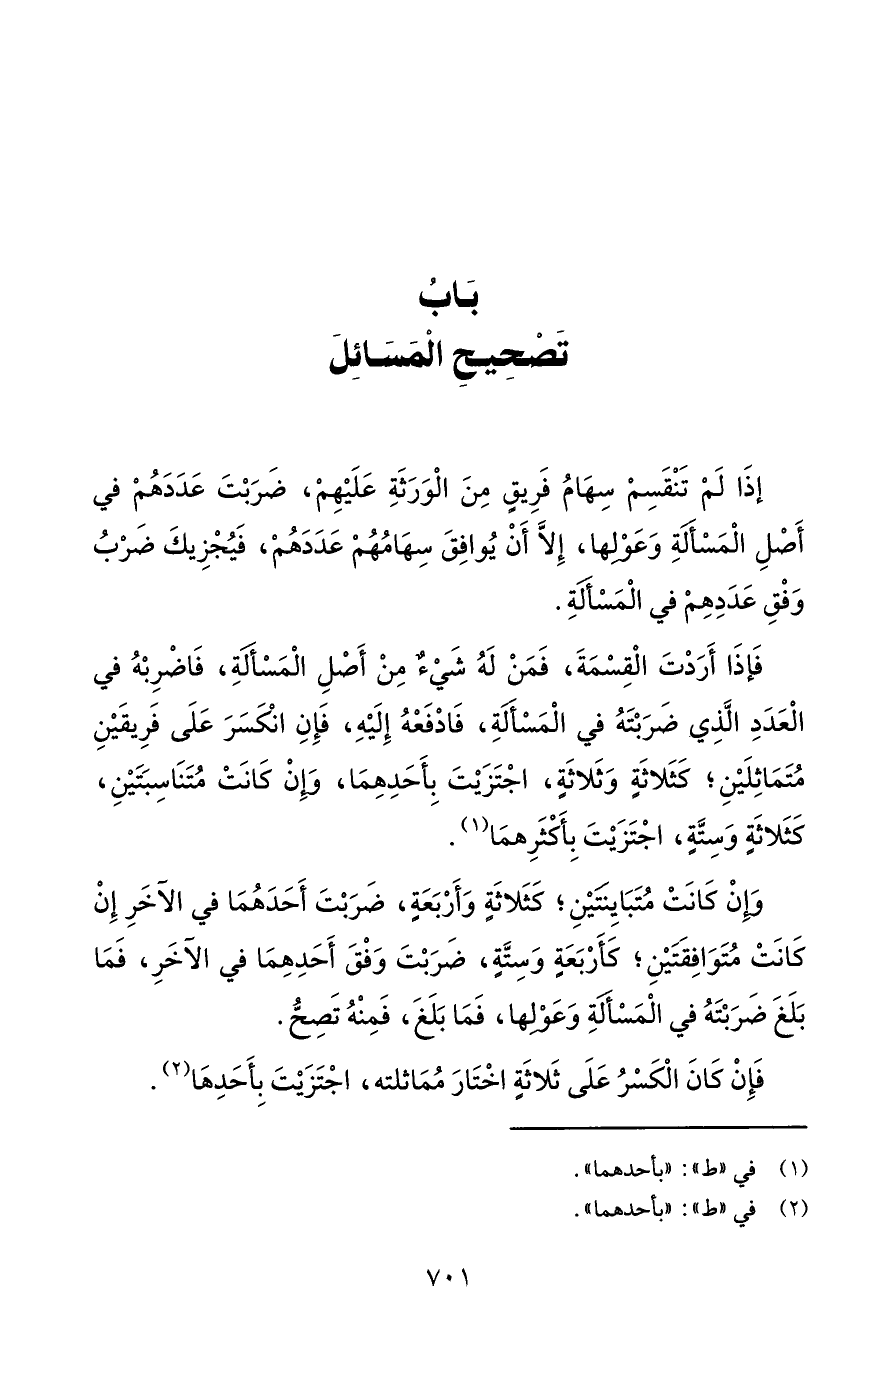 بَابُ
تَصْحِيحِ الْمَسَائِلَ
إذَا لَمْ تَنْقَسِمْ سِهَامُ فَرِيقٍ مِنَ الْوَرَثَةِ عَلَيْهِمْ، ضَرَبْتَ عَدَدَهُمْ في
أَصْلِ الْمَسْأَلَةِ وَعَوْلِها، إِلاَّ أَنْ يُوافِقَ سِهَامُهُمْ عَدَدَهُمْ، فَيُجْزِيكَ ضَرْبُ
وَفْقِ عَدَدِهِمْ في الْمَسْأَلَةِ.
فَإذَا أَرَدْتَ الْقِسْمَةَ، فَمَنْ لَهُ شَيْءٌ مِنْ أَصْلِ الْمَسْأَلَةِ، فَاضْرِبْهُ في
الْعَدَدِ الَّذِي ضَرَبْتَهُ في الْمَسْأَلَةِ، فَادْفَعْهُ إِلَيْهِ، فَإِنِ انْكَسَرَ عَلَى فَرِيقَيْنِ
مُتَمَاثِلَيْنِ؛ كَثَلاثَةٍ وَثَلاثَةٍ، اجْتَزَيْتَ بِأَحَدِهِمَا، وَإِنْ كَانَتْ مُتَنَاسِبَتَيْنِ،
كَثَلاثَةٍ وَسِتَّةٍ، اجْتَزَيْتَ بِأَكْثَرِهمَا(١).
وَإِنْ كَانَتْ مُتَبَايِنَتَيْنِ؛ كَثَلاثَةٍ وَأَرْبَعَةٍ، ضَرَبْتَ أَحَدَهُمَا في الآخَرِ إِنْ
كَانَتْ مُتَوَافِقَتَيْنِ؛ كَأَرْبَعَةٍ وَسِتَّةٍ، ضَرَبْتَ وَفْقَ أَحَدِهِمَا في الآخَرِ، فَمَا
بَلَغَ ضَرَبْتَهُ في الْمَسْأَلَةِ وَعَوْلِها، فَمَا بَلَغَ، فَمِنْهُ تَصِحُّ.
فَإِنْ كَانَ الْكَسْرُ عَلَى ثَلاثَةٍ اخْتَارَ مُمَاثلته، اجْتَزَيْتَ بِأَحَدِهَا(٢).
(١) في «ط»: «بأحدهما».
(٢) في «ط»: «بأحدهما».
٧٠١